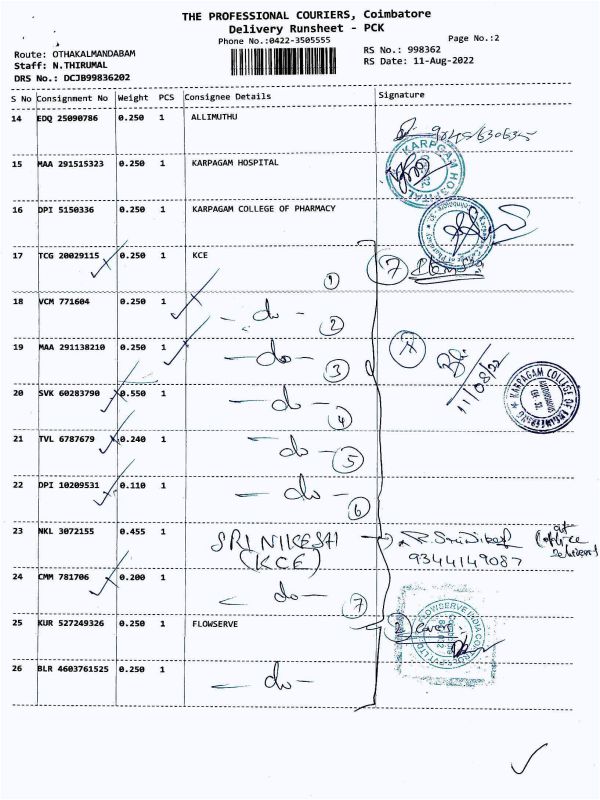 THE PROFESSIONAL COURIERS, Coimbatore
Delivery Runsheet - PCK
Phone No.:0422-3505555
Page No.:2
Route: OTHAKALMANDABAM
RS No.: 998362
Staff: N.THIRUMAL
RS Date: 11-Aug-2022
DRS No.: DCJB99836202
S No Consignment No Weight PCS Consignee Details Signature
14 EDQ 25090786 0.250 1 ALLIMUTHU
15 MAA 291515323 0.250 1 KARPAGAM HOSPITAL
KARPAGAM HOSPITAL
16 DPI 5150336 0.250 1 KARPAGAM COLLEGE OF PHARMACY
17 TCG 20029115 0.250 1 KCE
① ⑦
18 VCM 771604 0.250 1 - do - ②
19 MAA 291138210 0.250 1 - do - ③
11/08/22
KARPAGAM COLLEGE OF ENGINEERING
20 SVK 60283790 0.550 1 - do - ④
21 TVL 6787679 0.240 1 - do - ⑤
22 DPI 10209531 0.110 1 - do - ⑥
23 NKL 3072155 0.455 1 SRI NIKESH
(KCE)
9344149087
24 CMM 781706 0.200 1 - do - ⑦
25 KUR 527249326 0.250 1 FLOWSERVE
26 BLR 4603761525 0.250 1 - do -